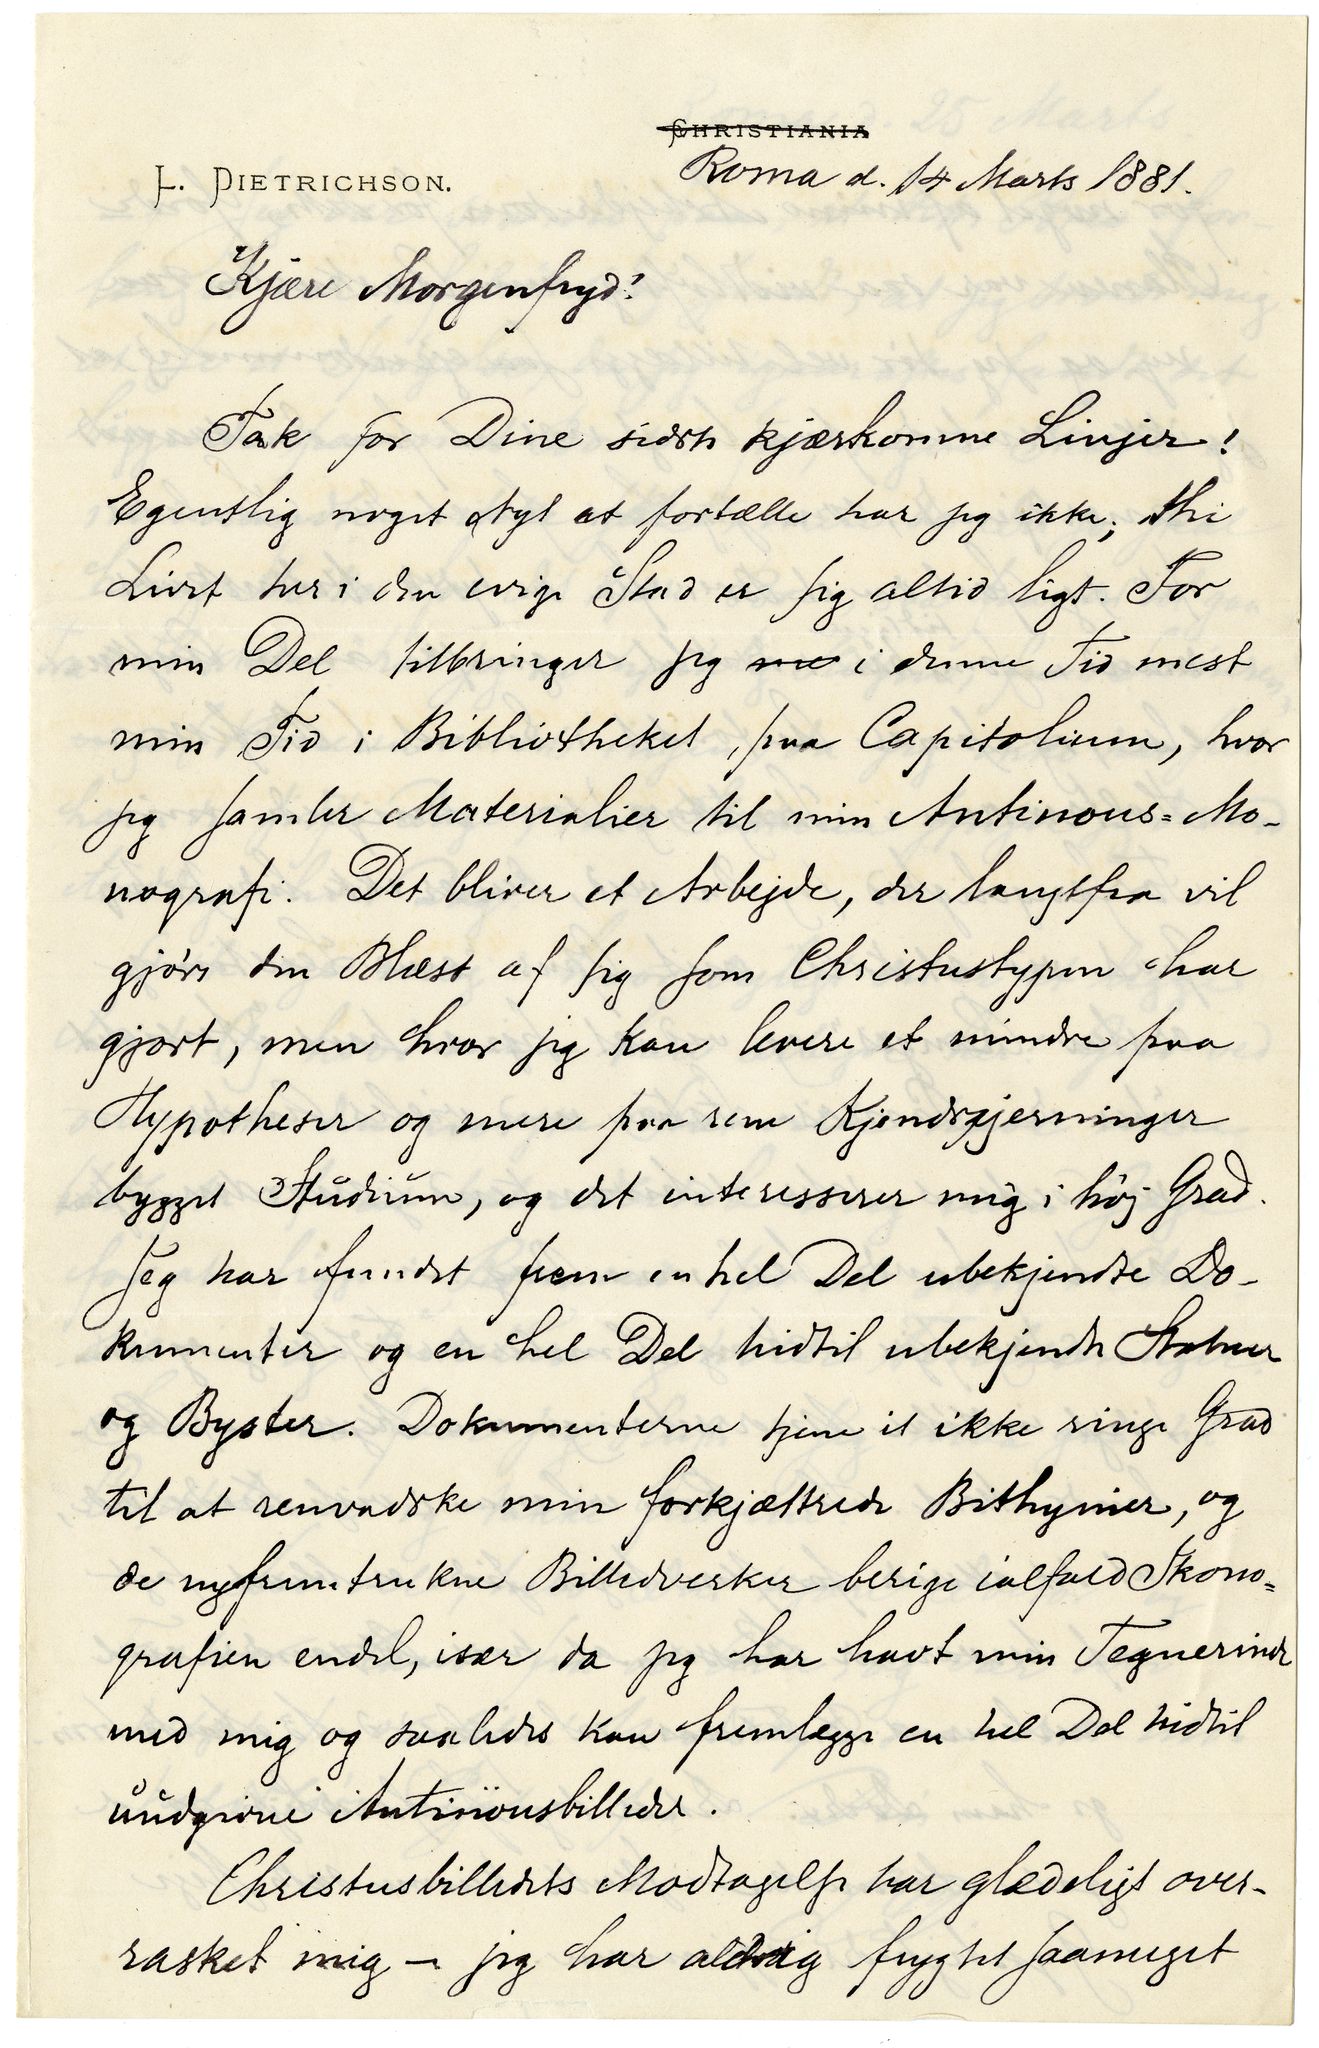 CHRISTIANIA
L. DIETRICHSON.
Roma d. 14 Marts 1881.
Kjære Morgenfryd!
Tak for Dine sidste kjærkomne Linjer!
Egentlig noget Nyt at fortælle har jeg ikke; thi
Livet her i den evige Stad er sig altid ligt. For
min Del tilbringer jeg me i denne Tid mest
min Tid i Bibliotheket paa Capitolium, hvor
jeg samler Materialier til min Antinous=Mo-
nografi. Det bliver et Arbejde, der langtfra vil
gjøre den Blæst af sig som Christustypen har
gjort, men hvor jeg kan levere et mindre paa
Hypotheser og mere paa rene Kjendsgjerninger
bygget Studium, og det interesserer mig i høj Grad.
Jeg har fundet frem en hel Del ubekjendte Do-
kumenter og en hel Del hidtil ubekjendte Statuer
og Byster. Dokumenterne tjene i ikke ringe Grad
til at renvadske min forkjættrede Bithynier, og
de nyfremtrukne Billedverker berige ialfald Ikono=
grafien endel, især da jeg har havt min Tegnerinde
med mig og saaledes kan fremlægge en hel Del hidtil
uudgivne Antinousbilleder.
Christusbilledets Modtagelse har glædeligt over-
rasket mig - jeg har aldrig frygtet saameget